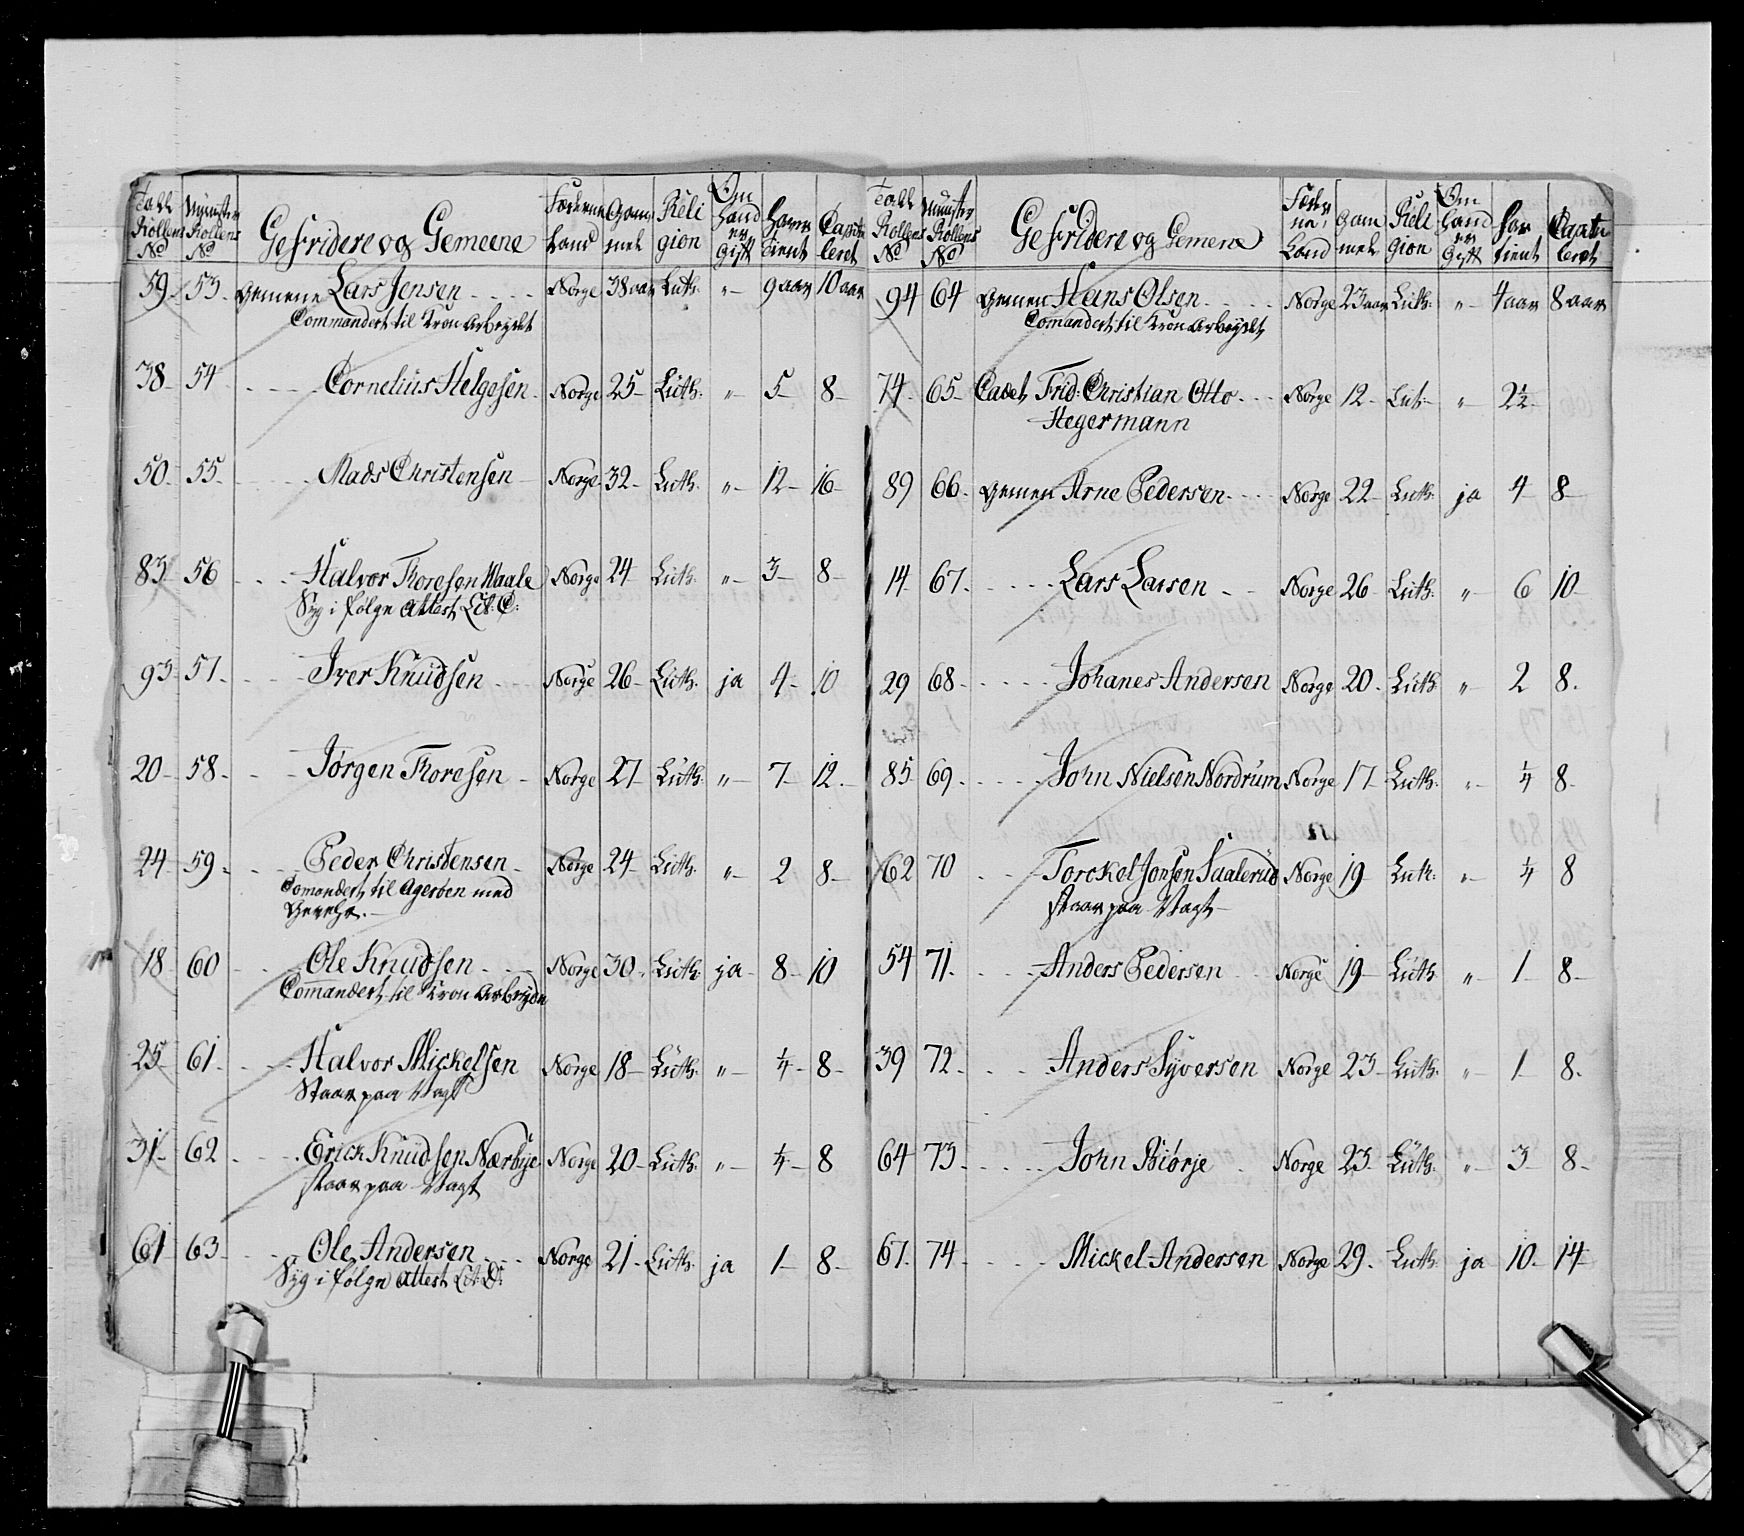 Tall Rollens No | Mynster Rollens No | Gefridere og Gemeene | Fæderne Land | Gammel | Religion | Om hand er Gift | Haver tient | Capituleret
59 53 Gemene Lars Jensen Norge 38 aar Luth: " 9 aar 10 aar
Commandert til Kron Arbeydet
38 54 Cornelius Helgesen Norge 25 Luth: " 5 8
50 55 Mads Christensen Norge 32 Luth: " 12 16
83 56 Halvor Thoresen Waale Norge 24 Luth: " 3 8
Syg i følge Attest Lit: C:
93 57 Iver Knudsen Norge 26 Luth: ja 4 10
20 58 Jørgen Thoresen Norge 27 Luth: " 7 12
24 59 Peder Christensen Norge 24 Luth: " 2 8
Comandert til Agerøen med
18 60 Ole Knudsen Norge 30 Luth: ja 8 10
Commandert til Kron Arbeyde
25 61 Halvor Mickelsen Norge 18 Luth: " 1/4 8
Staar paa Vagt
31 62 Erick Knudsen Nærbye Norge 20 Luth: " 1/4 8
staar paa Vagt
61 63 Ole Andersen Norge 21 Luth: ja 1 8
Syg i følge Attest Lit: D:
Tall Rollens No | Munster Rollens No | Gefridere og Gemene | Fæderne Land | Gammel | Religion | Om hand er Gift | Har tient | Capituleret
94 64 Gemen Hans Olsen Norge 23 aar Luth: " 4 aar 8 aar
Comandert til Kron Arbeydet
74 65 Cadet Frid: Christian Otto Norge 12 Lut: " 2 1/2
Hegermann
89 66 Gemen Arne Pedersen Norge 22 Luth: ja 4 8
14 67 Lars Larsen Norge 26 Luth: " 6 10
29 68 Johanes Andersen Norge 20 Luth: " 2 8
85 69 John Nielsen Nordrum Norge 17 Luth: " 1/4 8
62 70 Torckel Jonsen Saalerud Norge 19 Luth: " 1/4 8
staar paa Vagt
54 71 Anders Pedersen Norge 19 Luth " 1 8
39 72 Anders Syversen Norge 23 Luth: " 1 8
64 73 John Biørje Norge 23 Luth: " 3 8
67 74 Mickel Andersen Norge 29 Luth: ja 10 14